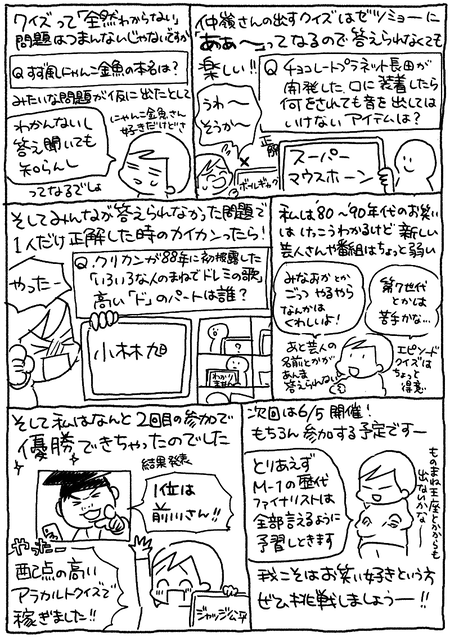 クイズって「全然わからない」
問題はつまんないじゃないですか
Q.すず風にゃんこ金魚の本名は?
みたいな問題が仮に出たとして
にゃんこ金魚さん
好きだけどさ
わかんないし
答え聞いても
知らんし
ってなるでしょ
仲嶺さんの出すクイズはゼツミョーに
「ああ〜」ってなるので答えられなくても
楽しい!!
Q チョコレートプラネット長田が
開発した、口に装着したら
何をされても音を出しては
いけないアイテムは?
うわ〜
そうか〜
正解
スーパー
マウスホーン
そしてみんなが答えられなかった問題で
1人だけ正解した時のカイカンったら!
Q.クリカンが88年に初披露した
「いろいろな人のまねでドレミの歌」
高い「ド」のパートは誰?
やったー
小林旭
わかりません
?
私は'80〜90年代のお笑い
はけっこうわかるけど新しい
芸人さんや番組はちょっと弱い
みなおかとか
ごっつ やるやら
なんかは
くわしいよ!
第7世代
とかは
苦手かな…
あと芸人の
名前とかが
あんま
答えられない
エピソード
クイズは
ちょっと
得意
そして私はなんと2回目の参加で
優勝できちゃったのでした
結果発表
1位は
前川さん!!
やったー
配点の高い
アラカルトクイズで
稼ぎました!!
ジャッジ公平
次回は6/5開催!
もちろん参加する予定ですー
とりあえず
M-1の歴代
ファイナリストは
全部言えるように
予習しときます
ものまね王座とかからも
出ないかな〜
我こそはお笑い好きという方
ぜひ挑戦しましょうー!!